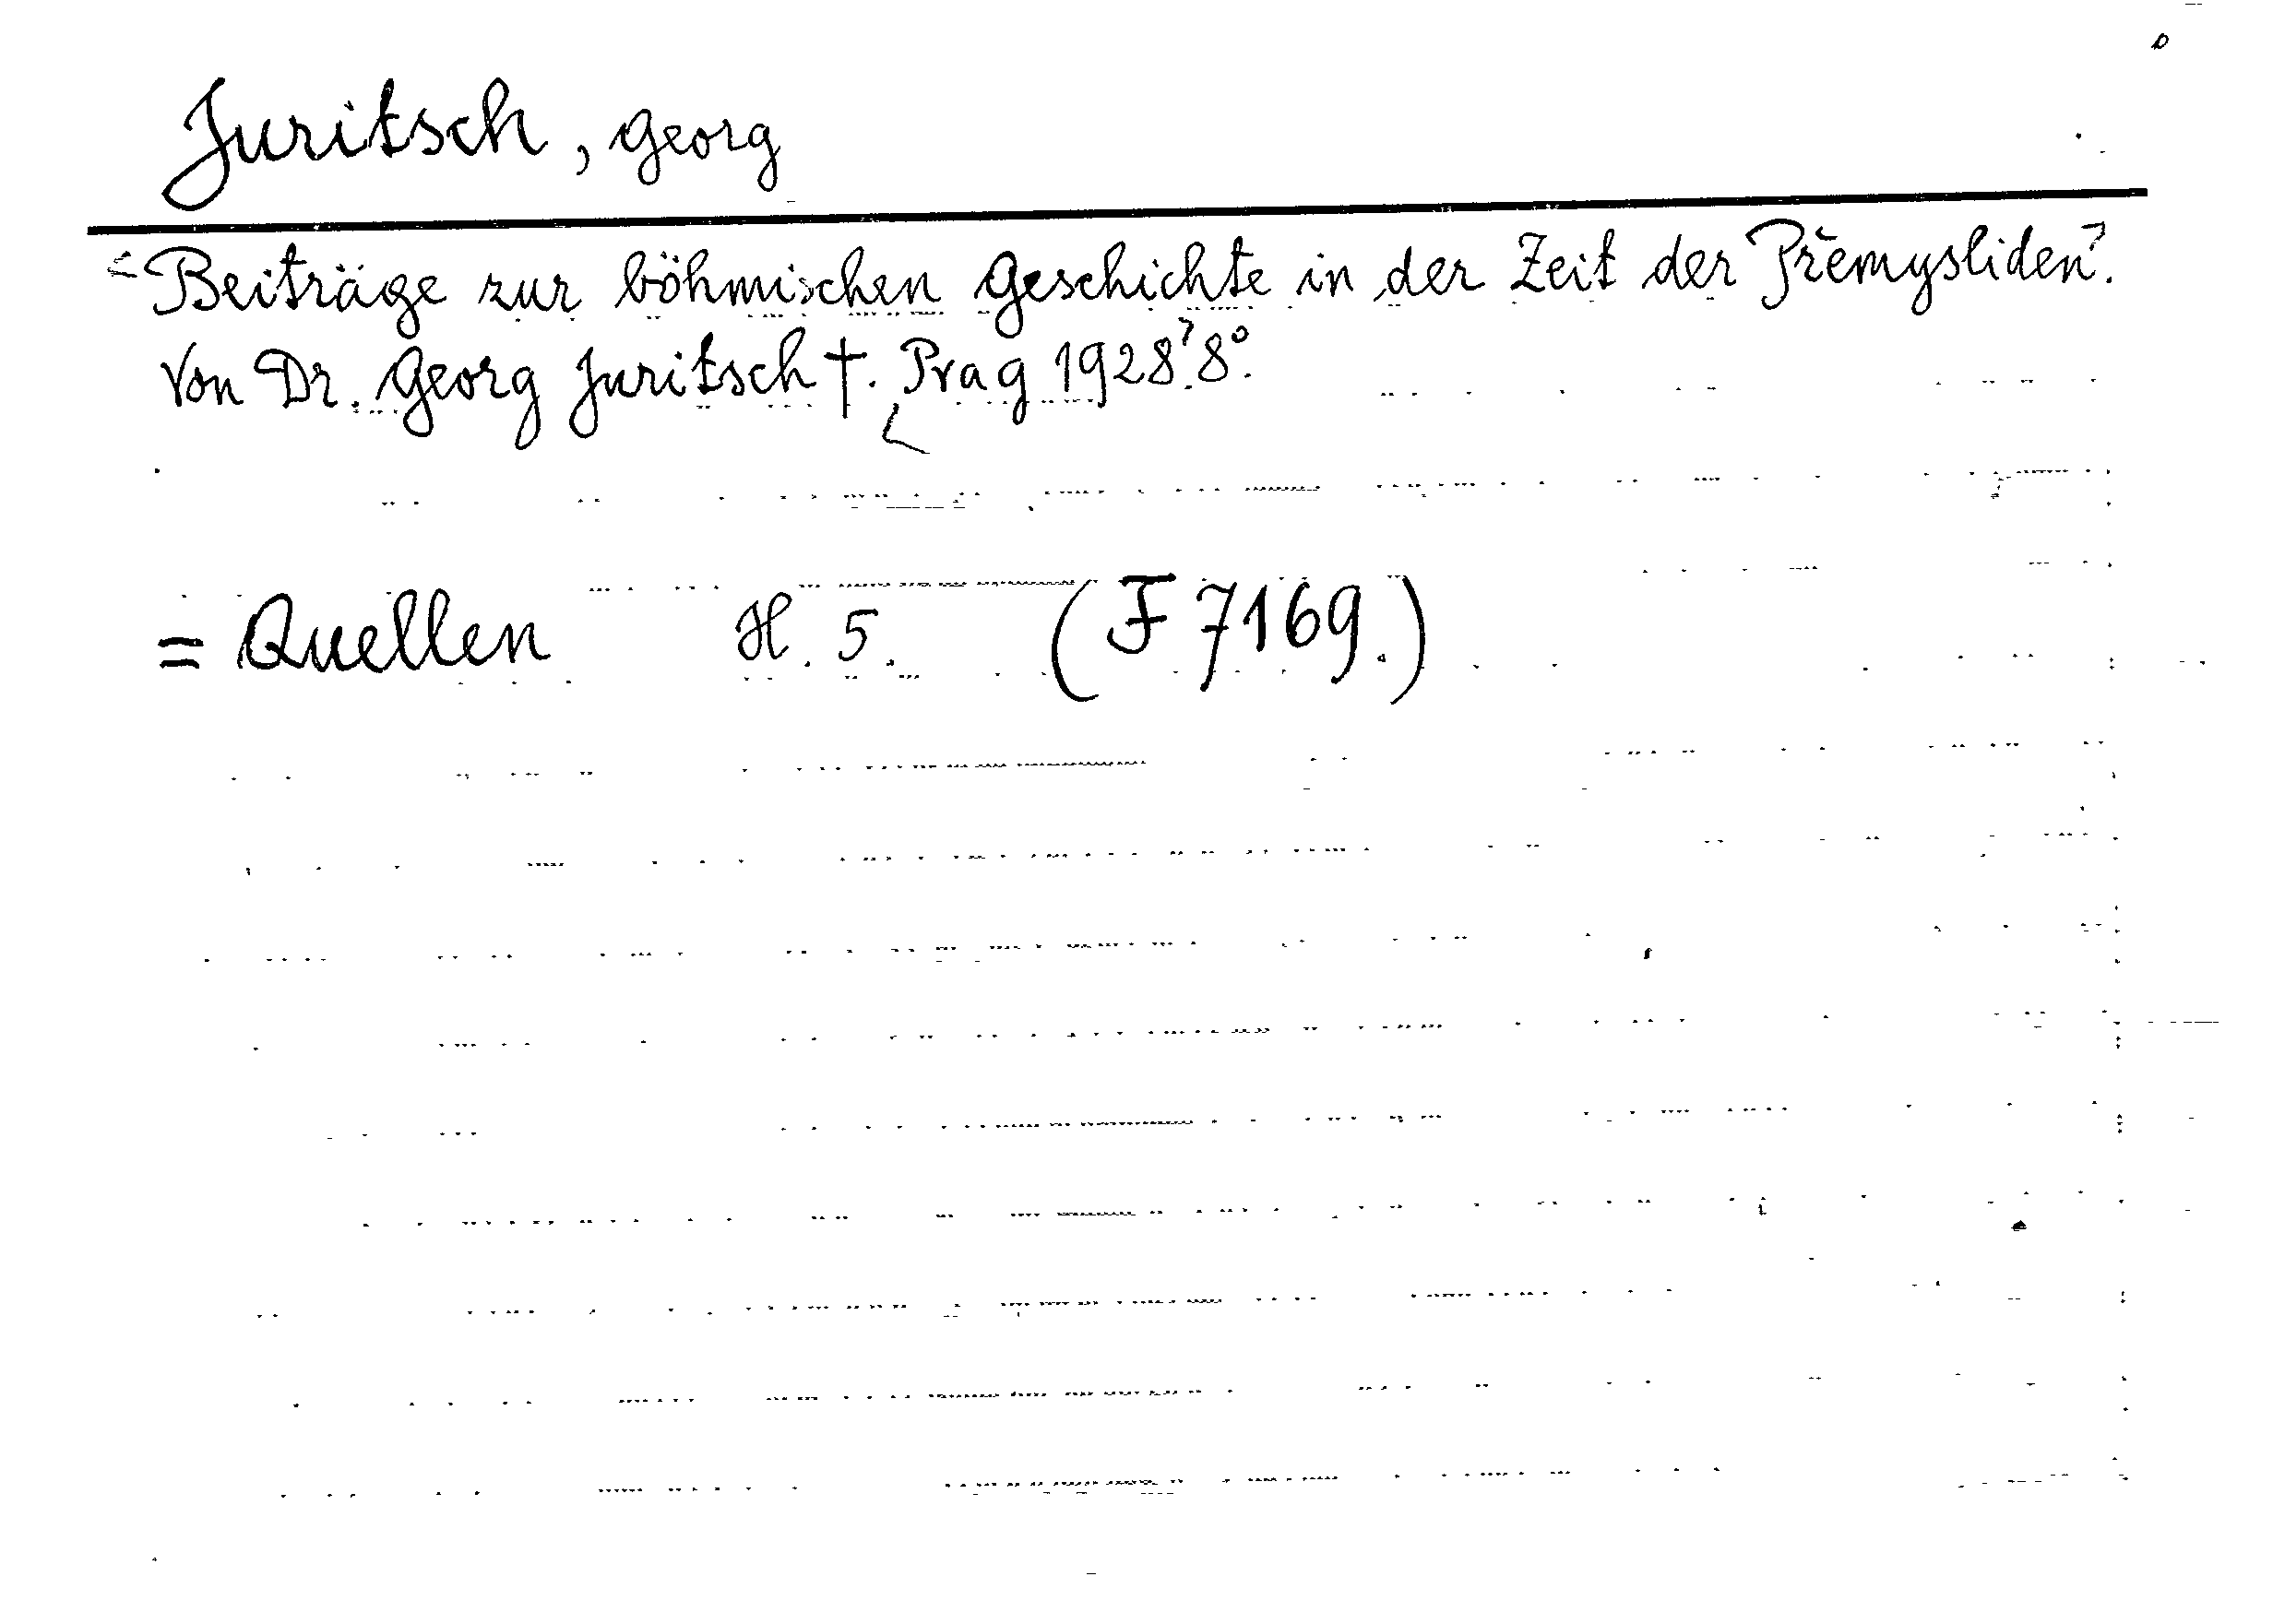 Juritsch, Georg
Beiträge zur böhmischen Geschichte in der Zeit der Přemysliden.
Von Dr. Georg Juritsch †. Prag 1928. 8°.
= Quellen H. 5. (F 7169.)